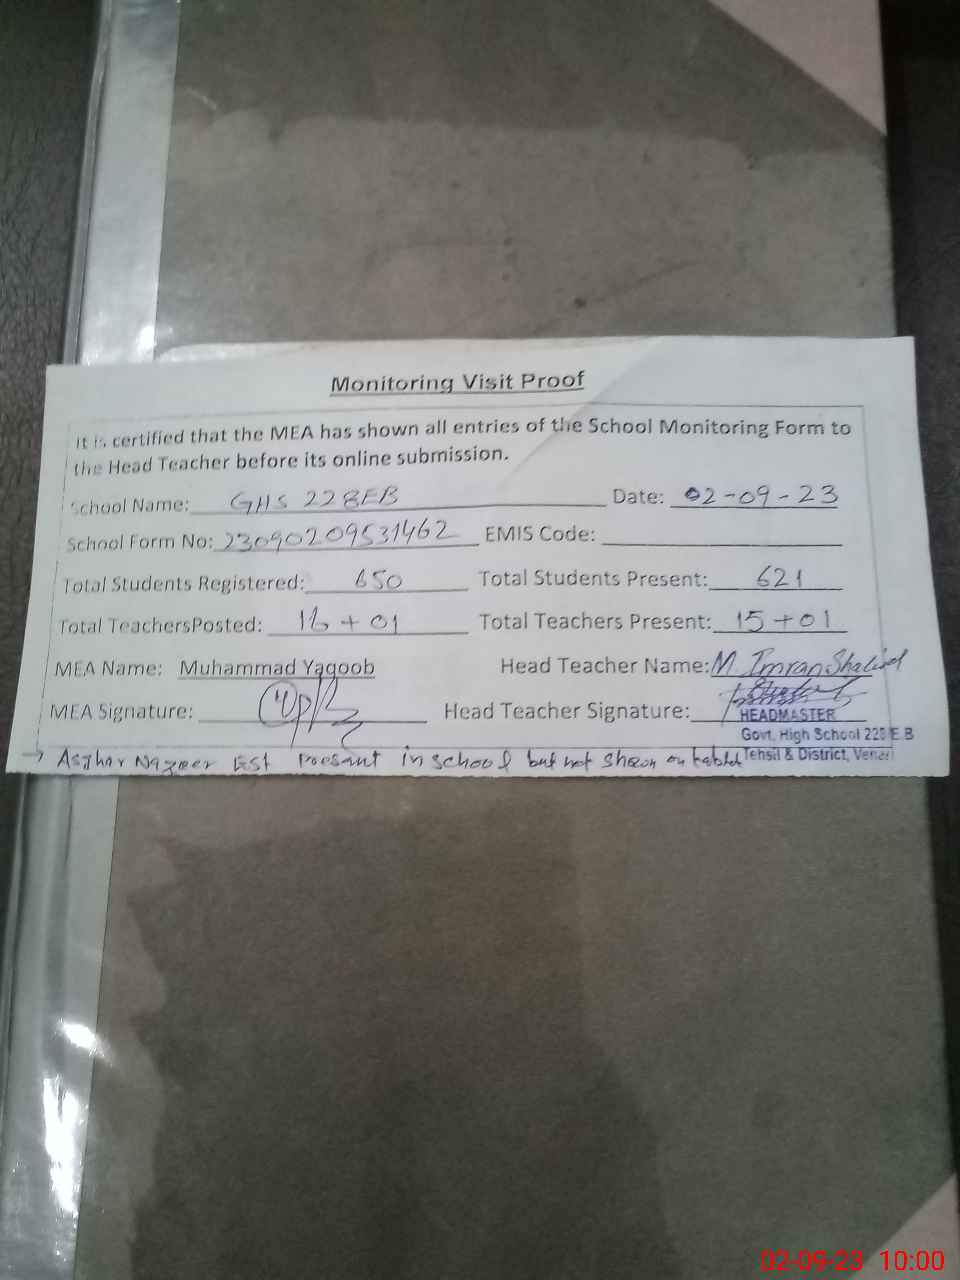 Monitoring Visit Proof
It is certified that the MEA has shown all entries of the School Monitoring Form to
the Head Teacher before its online submission.
School Name: GHS 228EB Date: 02-09-23
School Form No: 23090209531462 EMIS Code:
Total Students Registered: 650 Total Students Present: 621
Total TeachersPosted: 16 + 01 Total Teachers Present: 15 + 01
MEA Name: Muhammad Yaqoob Head Teacher Name: M. Imran Shahid
MEA Signature: Head Teacher Signature:
HEADMASTER
Govt. High School 228 E.B
Tehsil & District, Vehari
→ Asghar Nazeer Est present in school but not shown on tablet
02-09-23 10:00